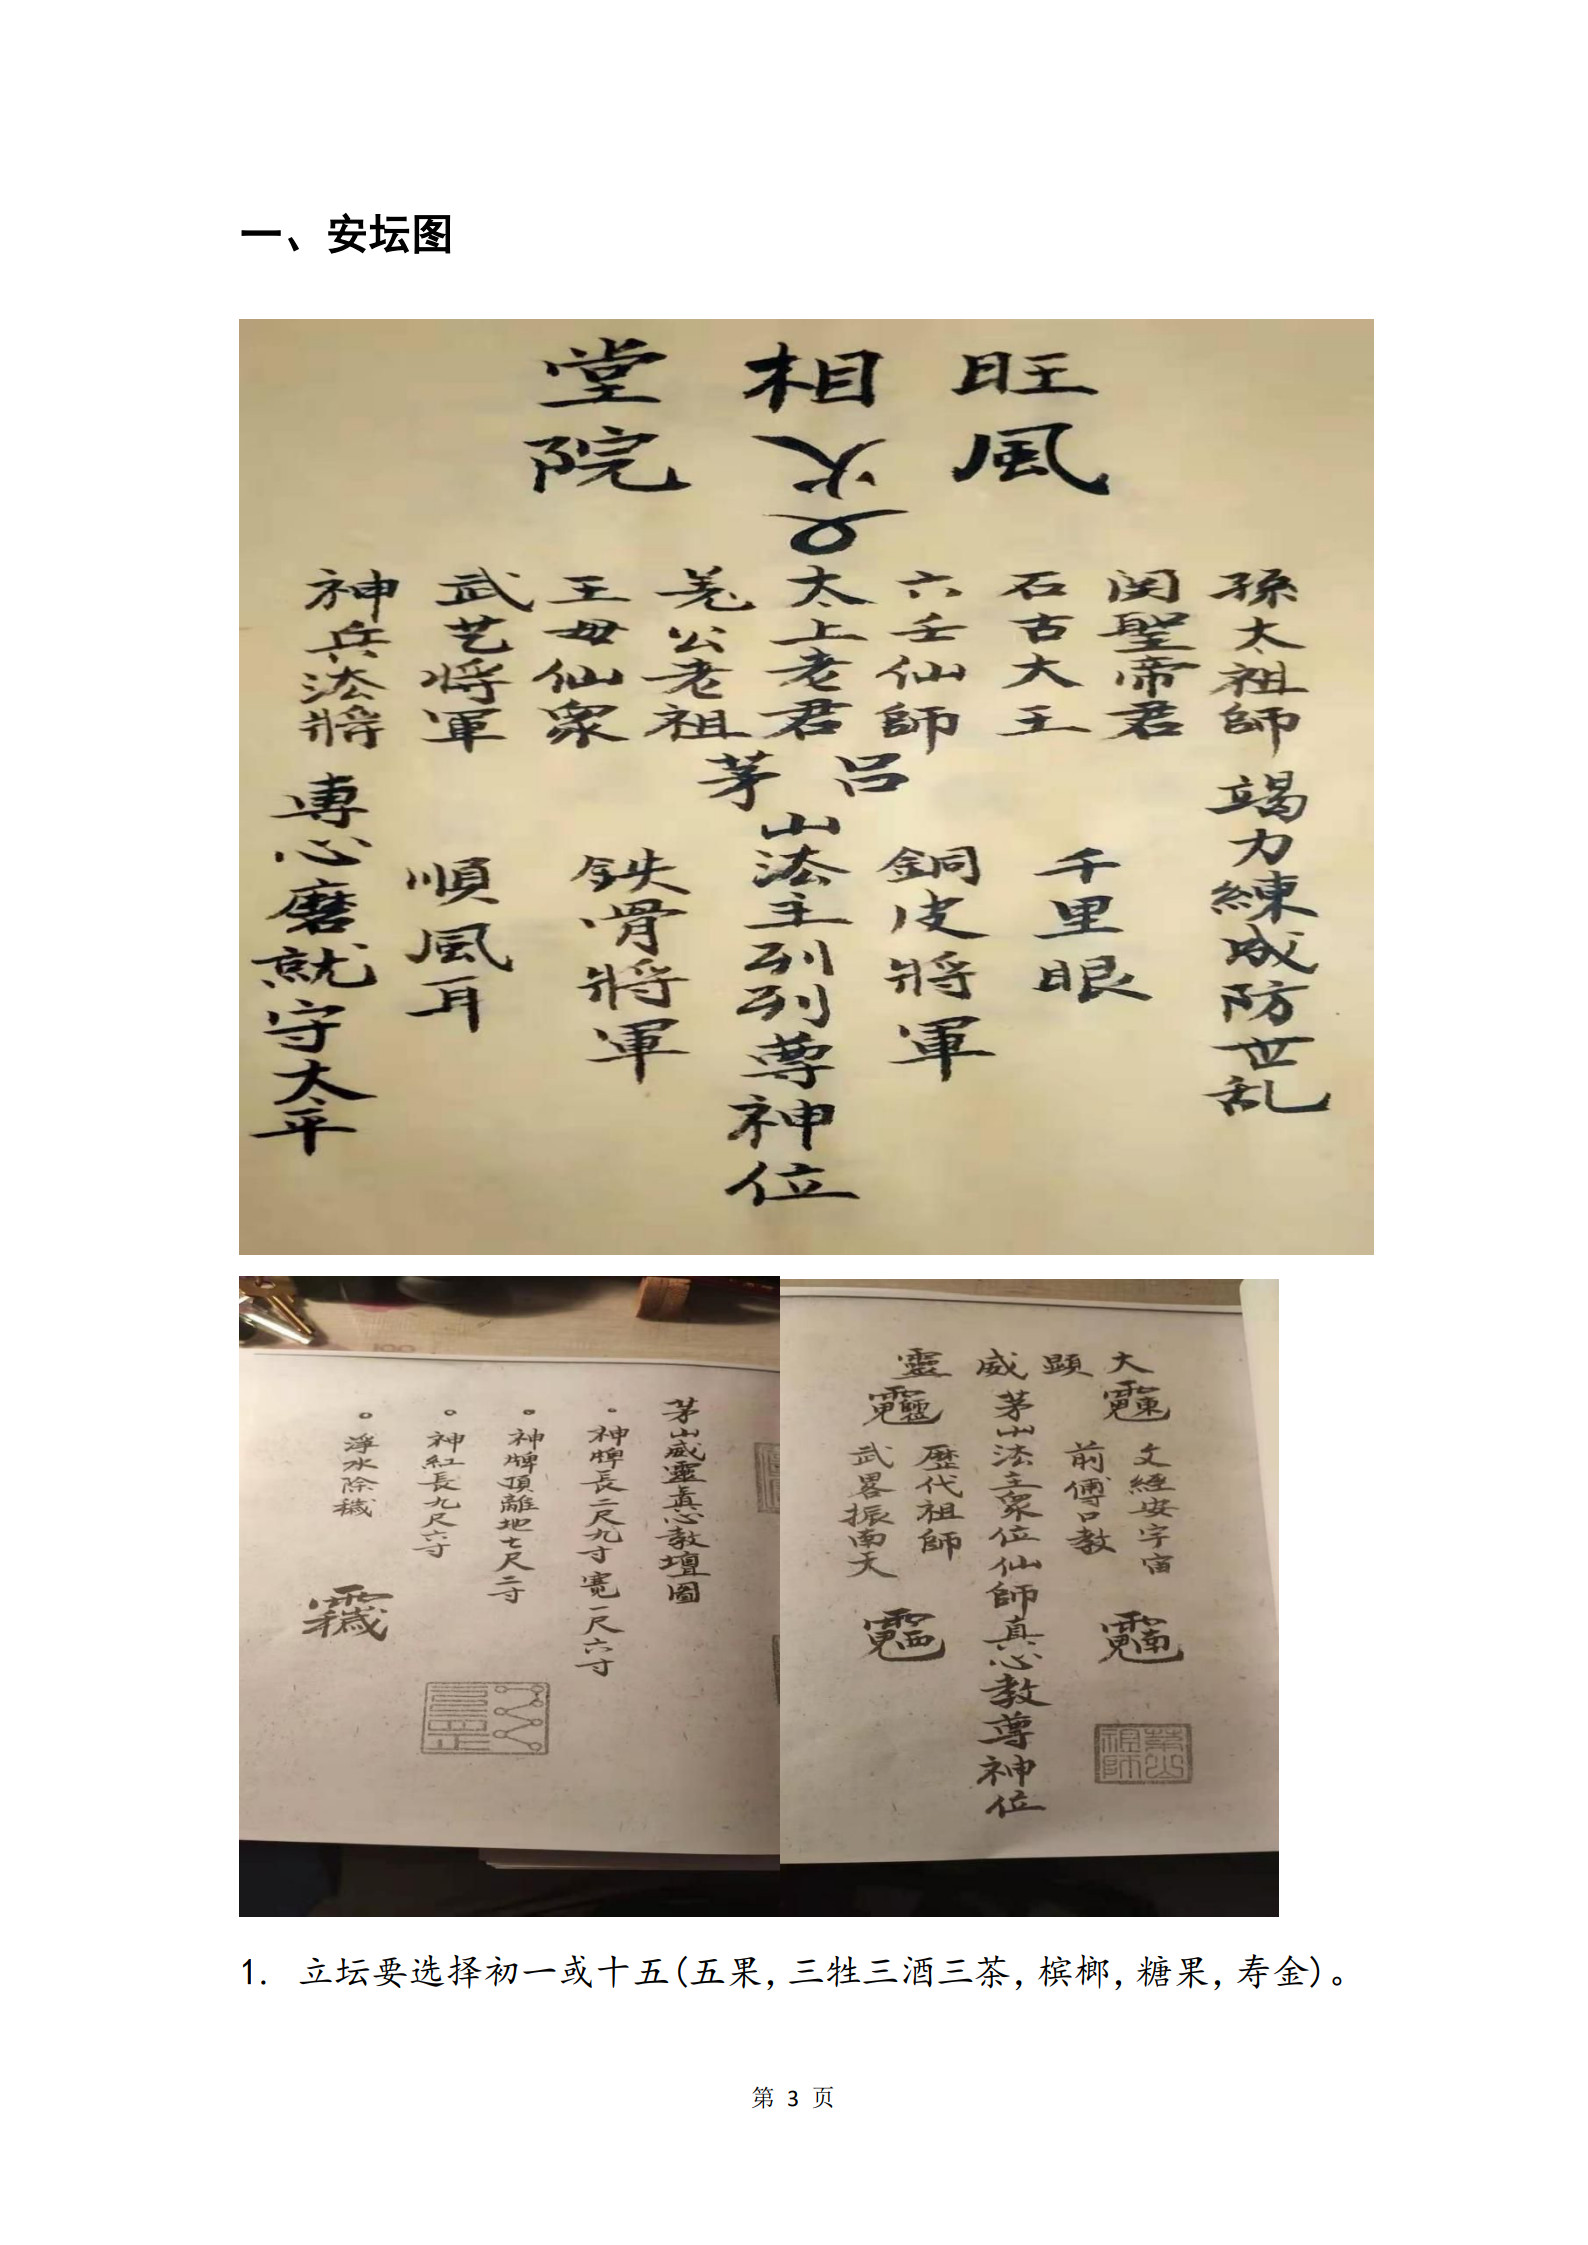 一、安坛图
旺相堂
風火院
孫太祖師
関聖帝君
石古大王
六壬仙師
太上老君
羌公老祖
王母仙眾
武艺将軍
神兵法將
呂
茅
山法主列列尊神位
竭力練成防世乱
千里眼
銅皮將軍
鉄骨將軍
順風耳
専心磨就守太平
茅山威靈真心教壇圖
。神牌長二尺九寸寬一尺六寸
。神牌頂離地七尺二寸
。神紅長九尺六寸
。淨水除穢
大顯威靈
文經安宇宙
前傳口教
茅山法主眾位仙師真心教尊神位
歷代祖師
武畧振南天
茅山祖師
1. 立坛要选择初一或十五(五果,三牲三酒三茶,槟榔,糖果,寿金)。
第 3 页